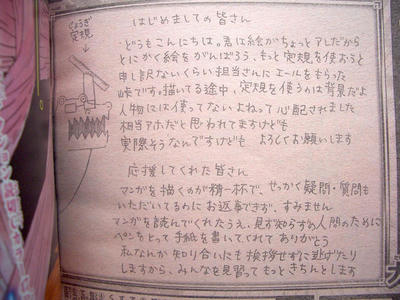 じょうぎ
定規
はじめましての皆さん
どうもこんにちは。君は絵がちょっとアレだから
とにかく絵をがんばろう、もっと定規を使おうと
申し訳ないくらい担当さんにエールをもらった
峠です。描いてる途中、定規を使うのは背景だよ
人物には使ってないよねって心配されました
相当アホだと思われてますけども
実際そうなんですけども よろしくお願いします
応援してくれた皆さん
マンガを描くのが精一杯で、せっかく疑問・質問も
いただいてるわにお返事できず、すみません
マンガを読んでくれたうえ、見ず知らずの人間のために
ペンをとって手紙を書いてくれて ありがとう
私なんか知り合いにも挨拶せずに逃げたり
しますから、みんなを見習ってもっときちんとします